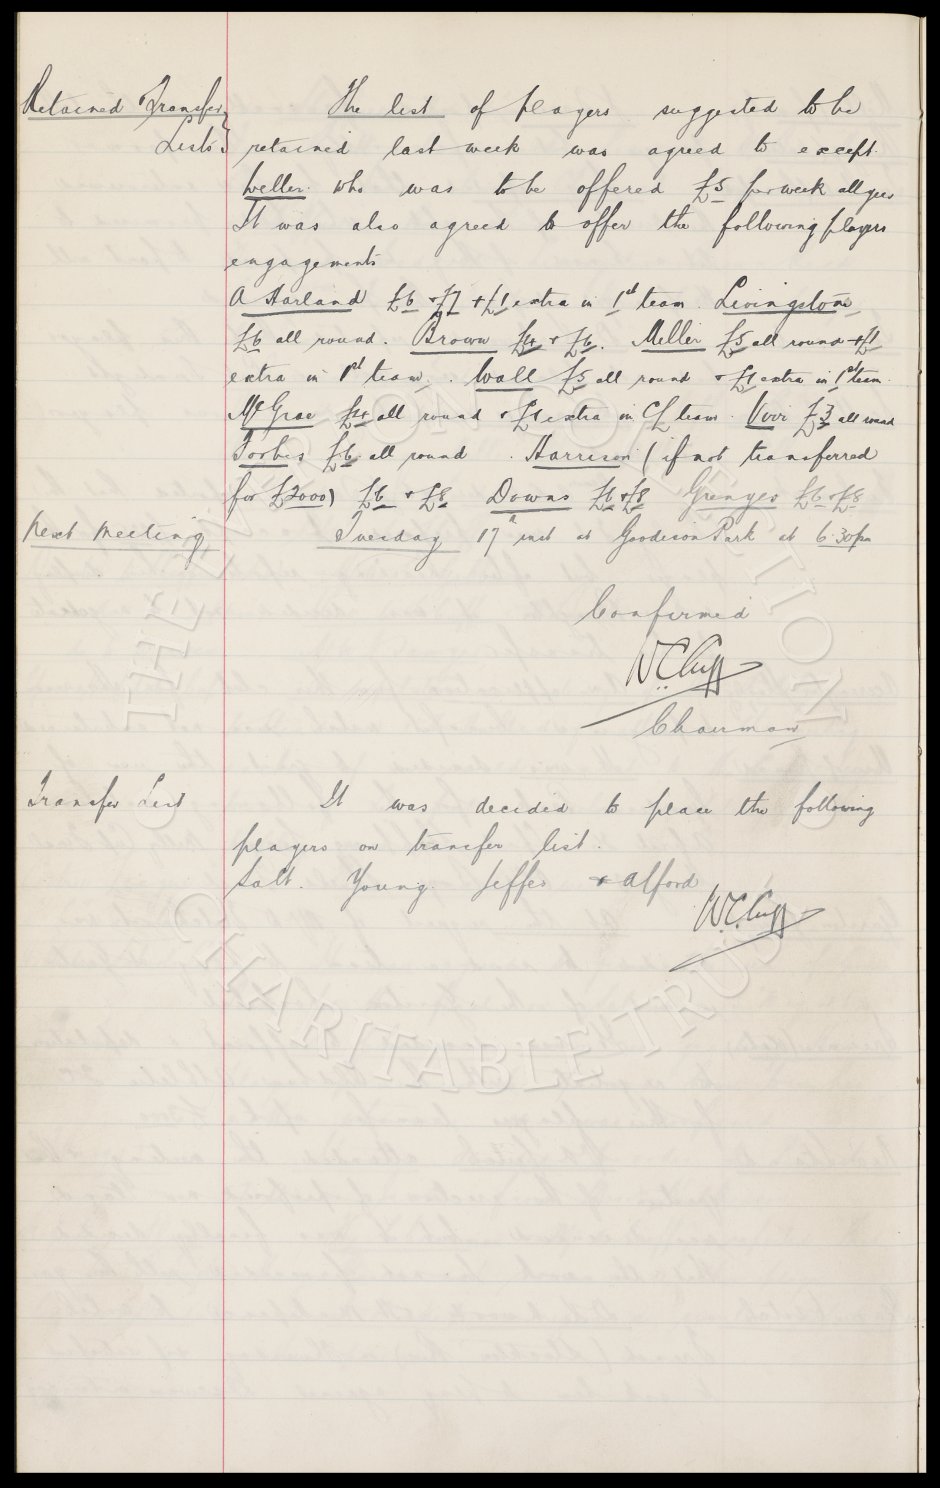 Retained & Transfer Lists
The list of players suggested to be
retained last week was agreed to except
Weller who was to be offered £5 per week all year
It was also agreed to offer the following players
engagements
A Harland £6 & £7 + £1 extra in 1st team. Livingstone
£6 all round. Brown £4 & £6. Meller £5 all round + £1
extra in 1st team. Wall £5 all round & £1 extra in 1st team.
McGrae £4 all round & £1 extra in CL team. Virr £3 all round
Forbes £6 all round. Harrison (if not transferred
for £2000) £6 & £8 Downs £6 & £8 Grenyer £6 & £8
Next Meeting
Tuesday 17th inst at Goodison Park at 6.30pm
Confirmed
W.C. Cuff
Chairman
Transfer List
It was decided to place the following
players on transfer list.
Salt. Young. Jeffes & Alford
W.C. Cuff
THE EVERTON COLLECTION
CHARITABLE TRUST